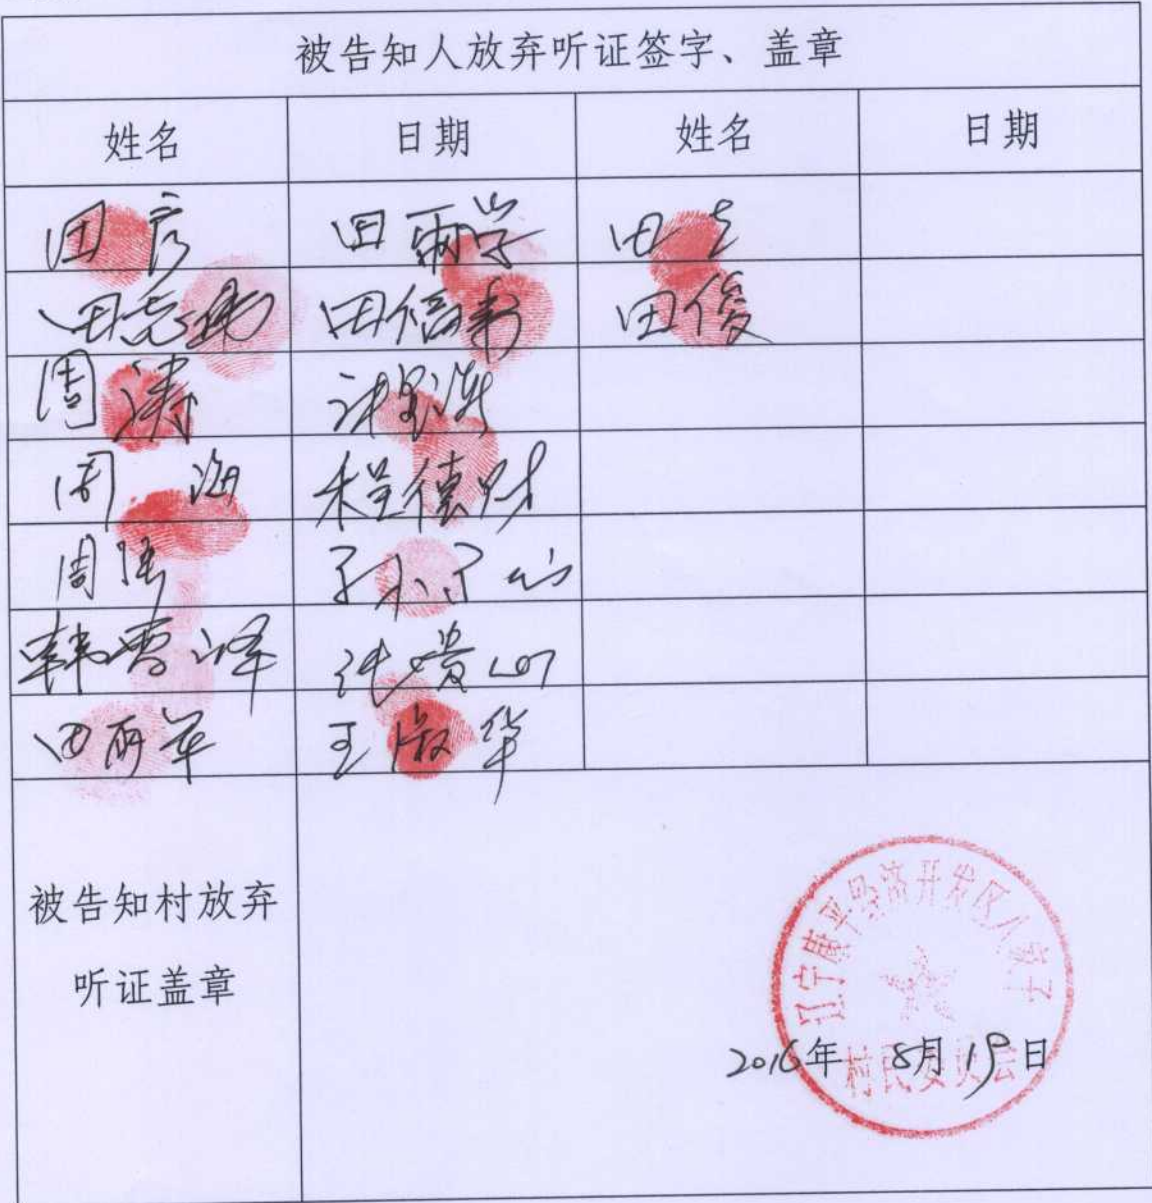 被告知人放弃听证签字、盖章
姓名 日期 姓名 日期
田彦 田雨学 田
田志伟 田信 田俊
周涛
周海 程德财
周涛
韩雪峰 张贵山
田雨军 王淑华
被告知村放弃
听证盖章
辽宁康平经济开发区八家子
村民委员会
2016年 8月19日